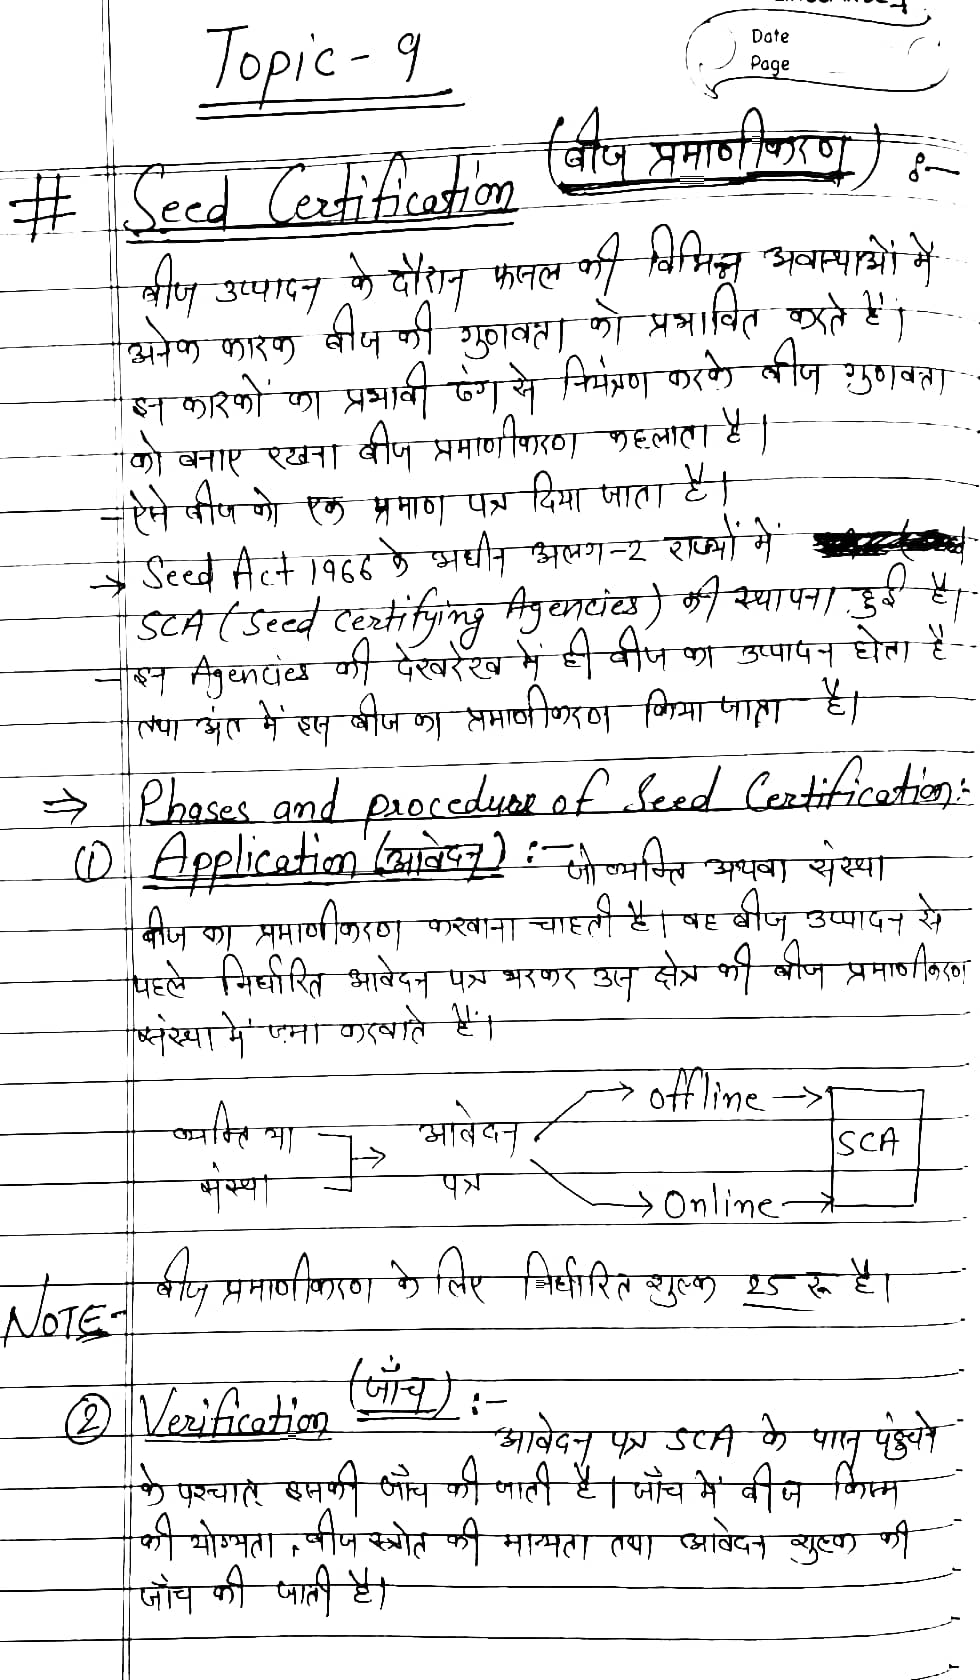 Topic - 9
Date
Page
# Seed Certification (बीज प्रमाणीकरण) :-
बीज उत्पादन के दौरान फसल की विभिन्न अवस्थाओं में
अनेक कारक बीज की गुणवत्ता को प्रभावित करते हैं।
इन कारकों का प्रभावी ढंग से नियंत्रण करके बीज गुणवत्ता
को बनाए रखना बीज प्रमाणीकरण कहलाता है।
- ऐसे बीज को एक प्रमाण पत्र दिया जाता है।
→ Seed Act 1966 के अधीन अलग-2 राज्यों में
SCA (Seed Certifying Agencies) की स्थापना हुई है।
- इन Agencies की देखरेख में ही बीज का उत्पादन होता है
तथा अंत में इस बीज का प्रमाणीकरण किया जाता है।
⇒ Phases and procedure of Seed Certification:-
① Application (आवेदन) :- जो व्यक्ति अथवा संस्था
बीज का प्रमाणीकरण करवाना चाहती है। वह बीज उत्पादन से
पहले निर्धारित आवेदन पत्र भरकर उस क्षेत्र की बीज प्रमाणीकरण
संस्था में जमा करवाते हैं।
व्यक्ति या संस्था → आवेदन पत्र → offline → SCA
→ Online →
बीज प्रमाणीकरण के लिए निर्धारित शुल्क 25 रू है।
NOTE-
② Verification (जाँच) :-
आवेदन पत्र SCA के पास पंहुचने
के पश्चात् इसकी जाँच की जाती है। जाँच में बीज किस्म
की योग्यता, बीज स्त्रोत की मान्यता तथा आवेदन शुल्क की
जाँच की जाती है।